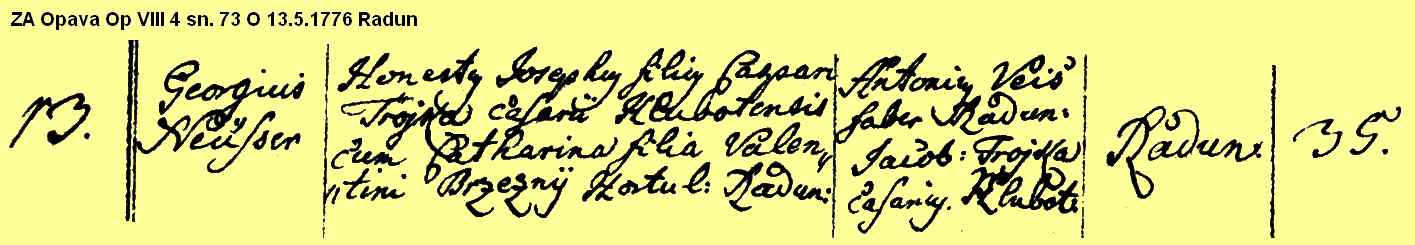 ZA Opava Op VIII 4 sn. 73 O 13.5.1776 Radun
13.
Georgius
Neüsser
Honesty Josephy filiy Caspari
Trojka Casarii Hlubotensis
cum Catharina filia Valen„
„tini Brzeznÿ Hortul: Radun:
Antoniy Veis
faber Radun:
Jacob: Trojka
casariy. Hlubot:
Radun:
35.